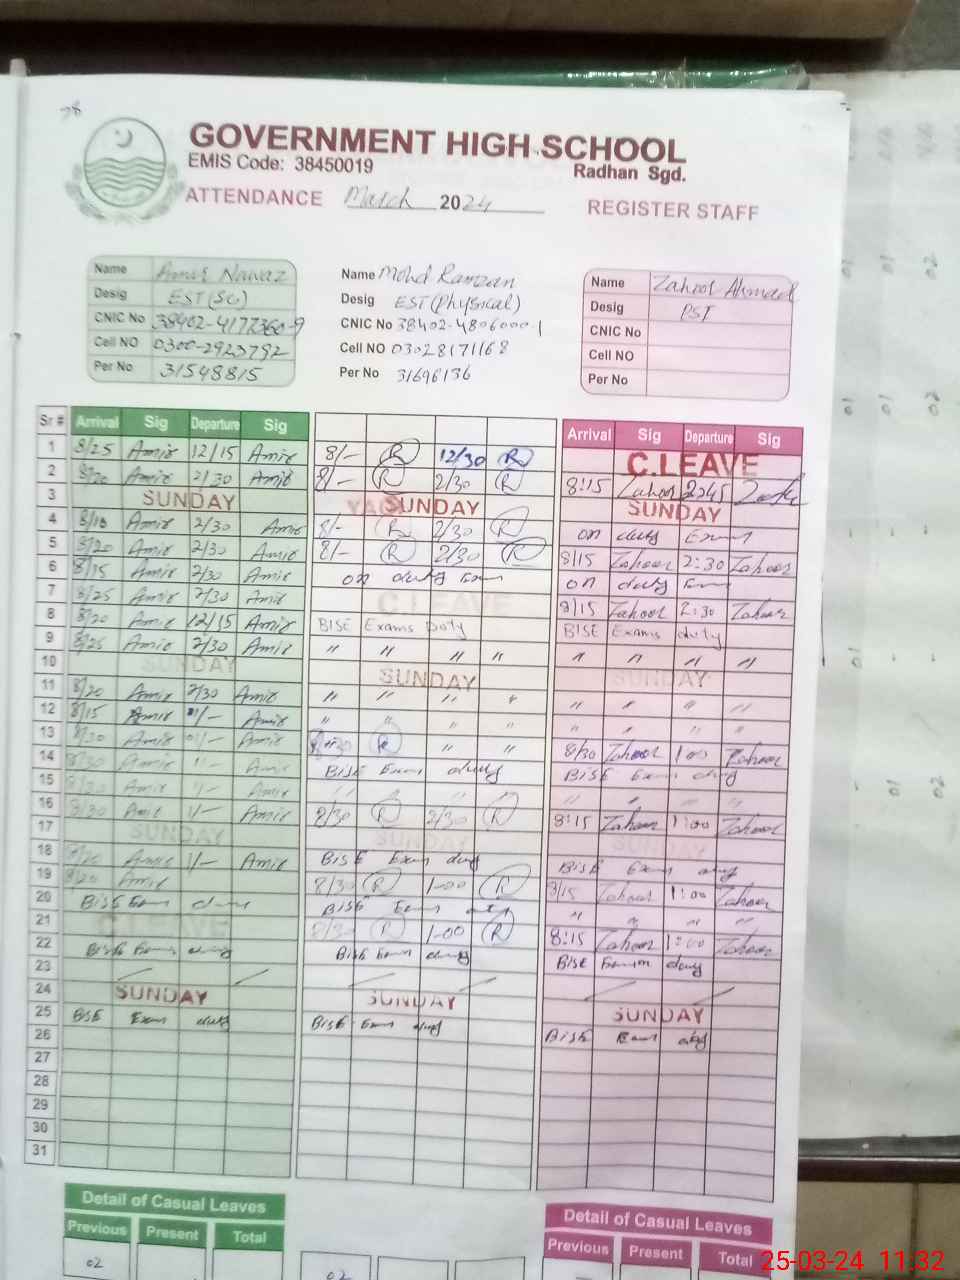 78
GOVERNMENT HIGH SCHOOL
EMIS Code: 38450019
Radhan Sgd.
ATTENDANCE March 2024 REGISTER STAFF
Name Amir Nawaz
Desig EST(SC)
CNIC No 38402-4177360-9
Cell NO 0300-2923792
Per No 31548815
Name Mohd Ramzan
Desig EST(Physical)
CNIC No 38402-4806000-1
Cell NO 03028171168
Per No 31696136
Name Zahoor Ahmad
Desig PST
CNIC No
Cell NO
Per No
Sr # Arrival Sig Departure Sig Arrival Sig Departure Sig
1 8/25 Amir 12/15 Amir 8/- R 12/30 R C.LEAVE
2 8/20 Amir 2/30 Amir 8/- R 2/30 R 8:15 Zahoor 2:45
3 SUNDAY SUNDAY SUNDAY
4 8/18 Amir 2/30 Amir 8/- R 2/30 R on duty Exam
5 8/20 Amir 2/30 Amir 8/- R 2/30 R 8/15 Zahoor 2:30 Zahoor
6 8/15 Amir 2/30 Amir on duty Exam on duty Exam
7 8/25 Amir 2/30 Amir C.LEAVE 8/15 Zahoor 2:30 Zahoor
8 8/20 Amir 12/15 Amir BISE Exams Duty BISE Exams duty
9 8/25 Amir 2/30 Amir " " " " " " " "
10 SUNDAY SUNDAY SUNDAY
11 8/20 Amir 2/30 Amir " " " " " " " "
12 8/15 Amir 1/- Amir " " " " " " "
13 8/30 Amir 1/- Amir R " " 8/30 Zahoor 1:00 Zahoor
14 8/30 Amir Amir BISE Exam duty BISE Exam duty
15 Amir 1/- Amir " " " " " " " "
16 8/30 Amir 1/- Amir 8/30 R 2/30 R 8:15 Zahoor 1:00 Zahoor
17 SUNDAY SUNDAY SUNDAY
18 8/20 Amir 1/- Amir BISE Exam duty BISE Exam duty
19 8/20 Amir 8/30 R 1-00 R 8/15 Zahoor 1:00 Zahoor
20 BISE Exam duty BISE Exam duty " " " "
21 C.LEAVE 8/30 R 1-00 R 8:15 Zahoor 1:00 Zahoor
22 BISE Exam duty BISE Exam duty BISE Exam duty
23
24 SUNDAY SUNDAY SUNDAY
25 BISE Exam duty BISE Exam duty BISE Exam duty
26
27
28
29
30
31
Detail of Casual Leaves Detail of Casual Leaves
Previous Present Total Previous Present Total
02 02
25-03-24 11:32